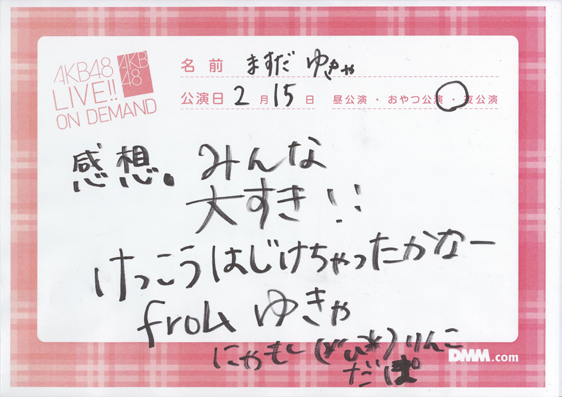 AKB48
LIVE!!
ON DEMAND
AKB
48
名前 ますだ ゆきゃ
公演日 2月15日 昼公演・おやつ公演・夜公演
感想。みんな
大すき!!
けっこうはじけちゃったかなー
from ゆきゃ
にゃもし (*'ω'*) りんこ
だぱ
DMM.com